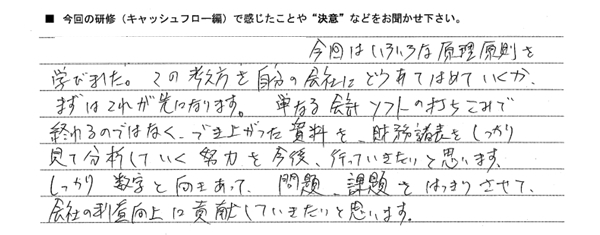 ■ 今回の研修（キャッシュフロー編）で感じたことや“決意”などをお聞かせ下さい。
今回はいろいろな原理原則を
学びました。この考え方を自分の会社にどうあてはめていくか、
まずはこれが先になります。単なる会計ソフトの打ちこみで
終わるのではなく、でき上がった資料を、財務諸表をしっかり
見て分析していく努力を今後、行っていきたいと思います。
しっかり数字と向きあって、問題、課題をはっきりさせて、
会社の利益向上に貢献していきたいと思います。